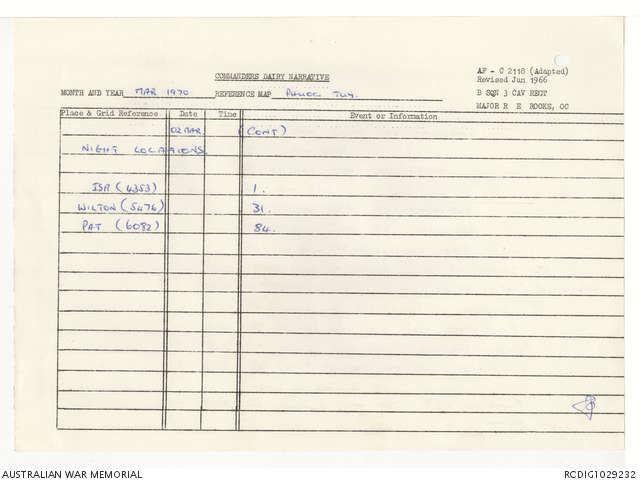 COMMANDERS DAIRY NARRATIVE
AF - C 2118 (Adapted)
Revised Jun 1966
MONTH AND YEAR MAR 1970 REFERENCE MAP PHUOC TUY. B SQN 3 CAV REGT
MAJOR R E ROOKS, OC
Place & Grid Reference Date Time Event or Information
02 MAR (CONT)
NIGHT LOCATIONS
ISA (4353) 1.
WILTON (5476) 31.
PAT (6082) 84.
AUSTRALIAN WAR MEMORIAL RCDIG1029232